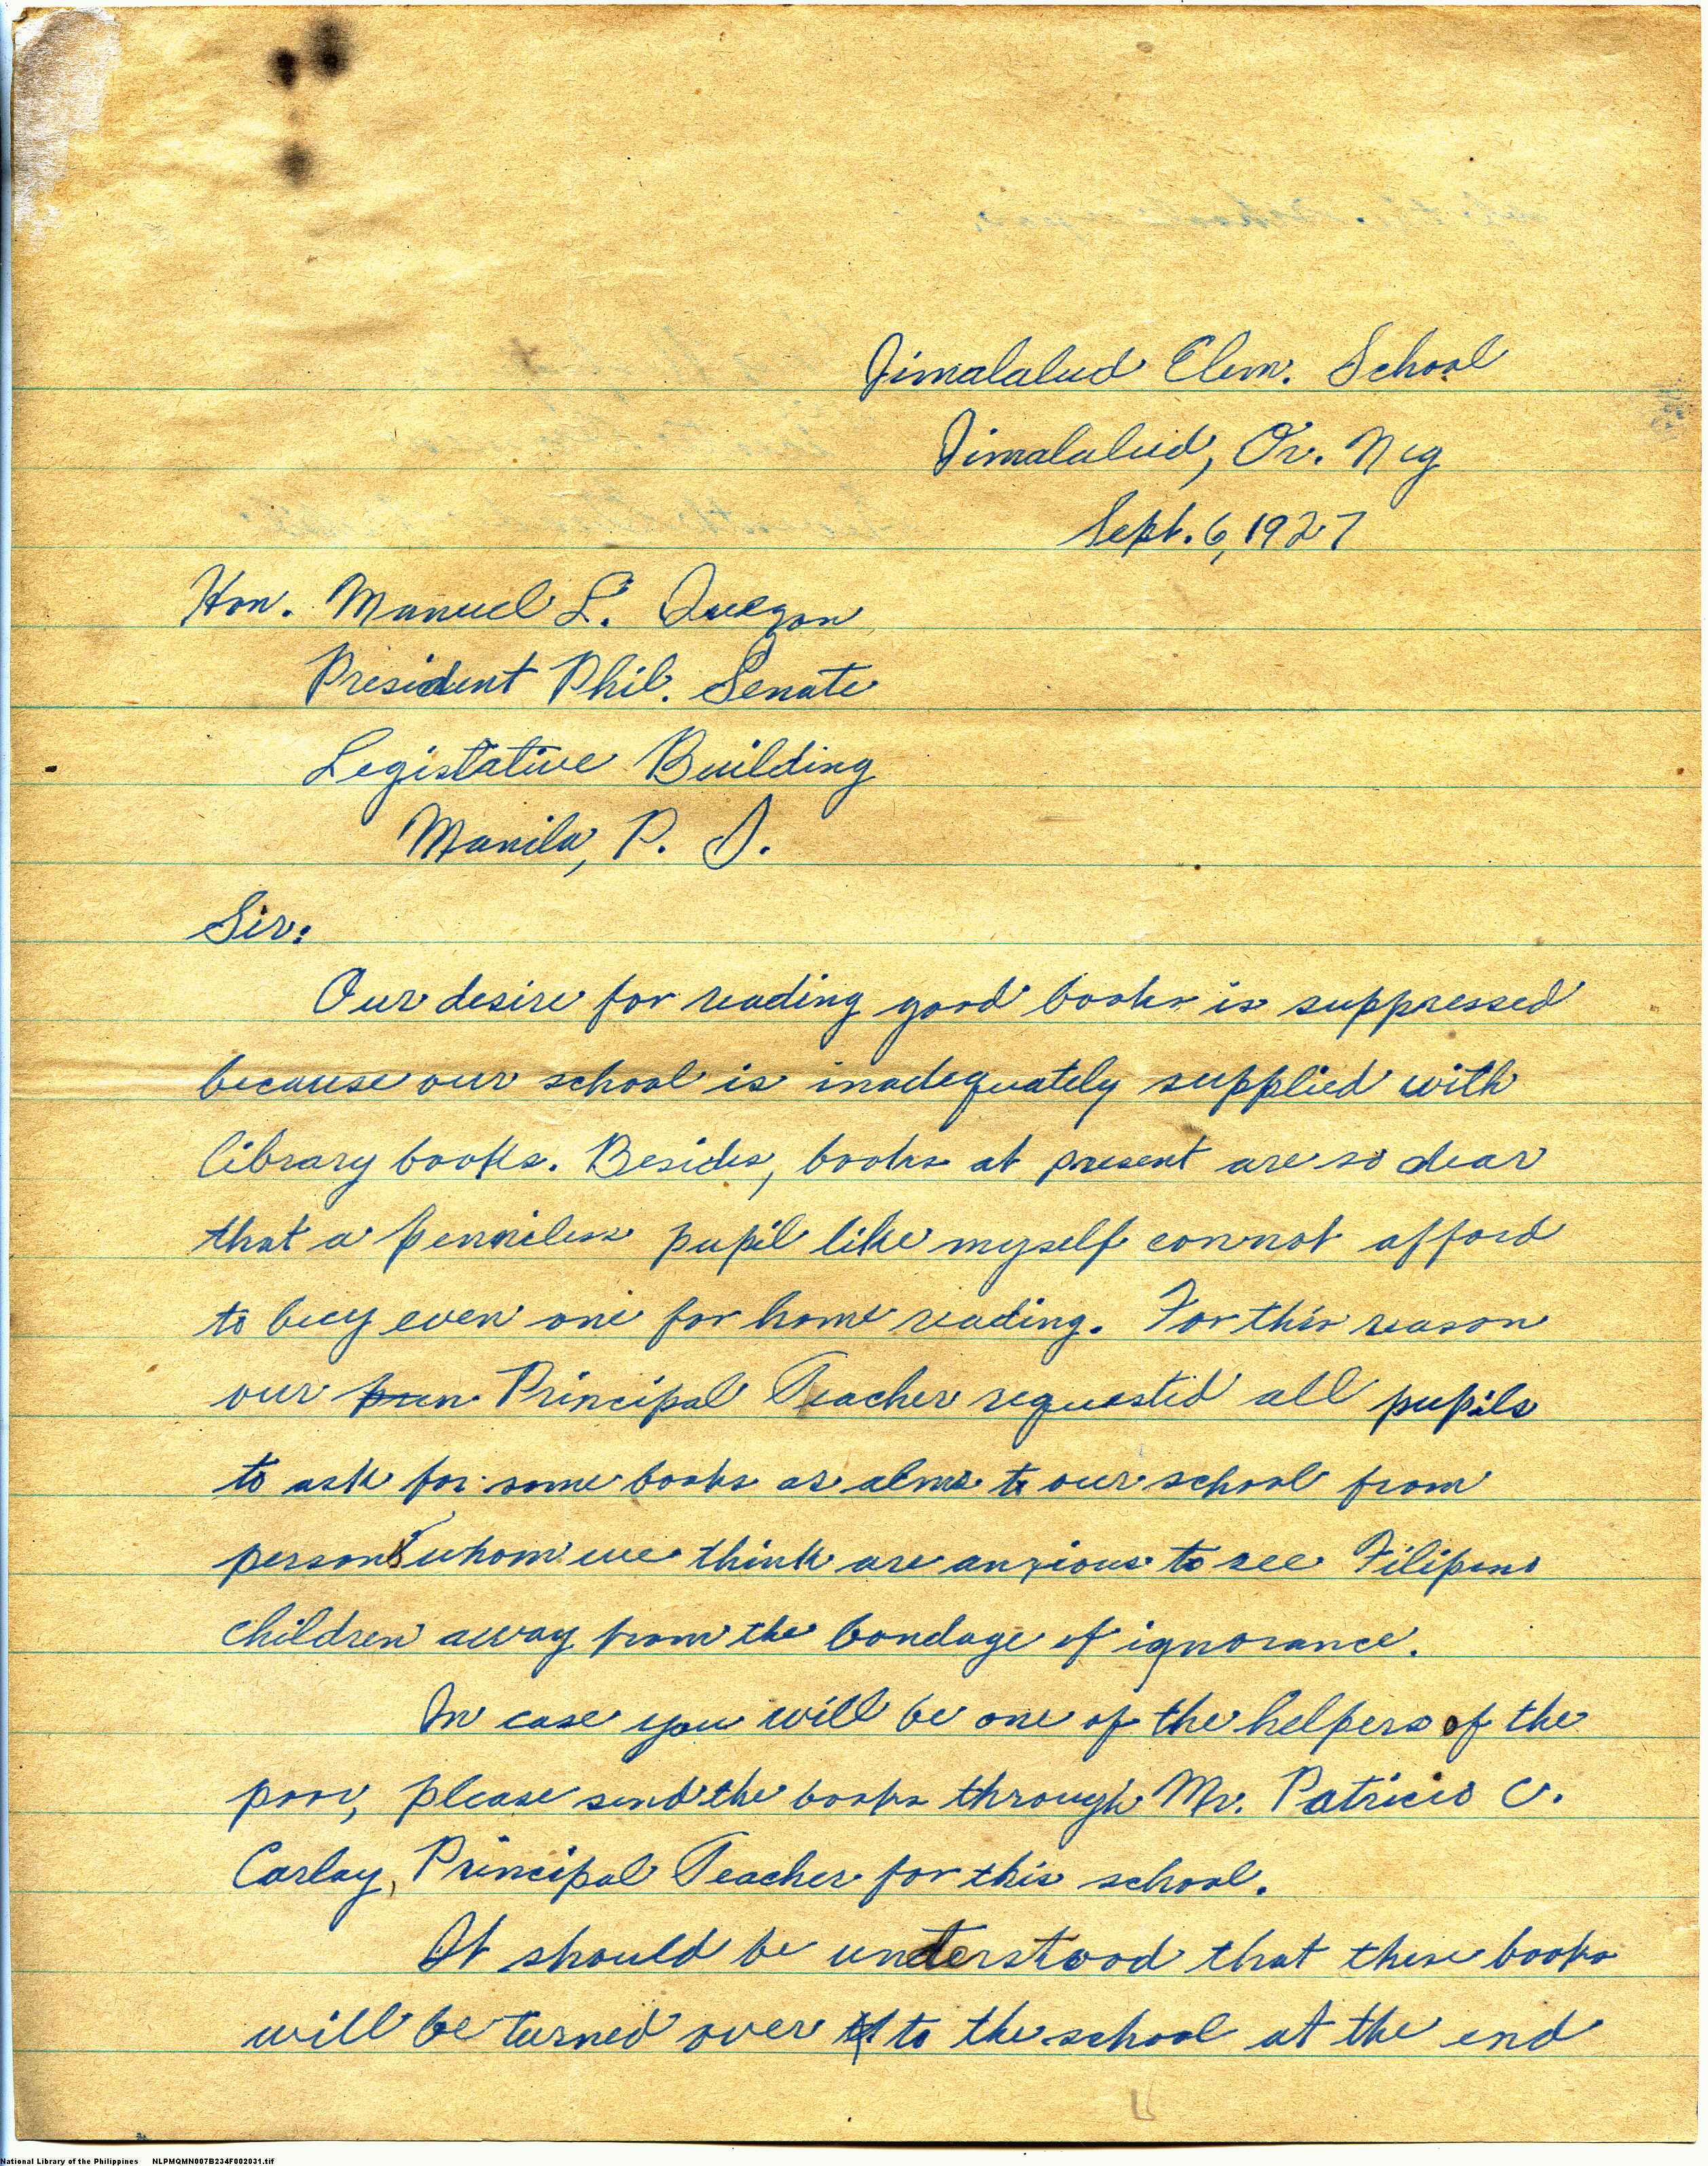 Jimalalud Elem. School
Jimalalud, Or. Neg
Sept. 6, 1927
Hon. Manuel L. Quezon
President Phil. Senate
Legistative Building
Manila, P. I.
Sir:
Our desire for reading good books is suppressed
because our school is inadequately supplied with
library books. Besides, books at present are so dear
that a penniless pupil like myself connot afford
to buy even one for home reading. For this reason
our Principal Teacher requested all pupils
to ask for some books as alms to our school from
persons whom we think are anxious to see Filipino
children away from the bondage of ignorance.
In case you will be one of the helpers of the
poor, please send the books through Mr. Patricio C.
Carlay, Principal Teacher for this school.
It should be understood that these books
will be turned over to the school at the end
National Library of the Philippines NLPMQMN007B234F002031.tif